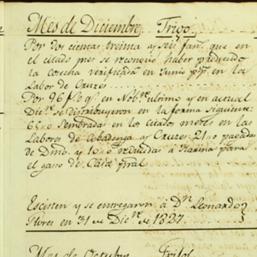 Mes de Diciembre Trigo.
Por dos cientas treinta y seis fan.s que en
el citado mes se reconoce haber producido
la cosecha verificada en Junio pp.º en la
Labor de Cruzes....
Por 96 f.s q.e en Nob.re ultimo y en actual
Dic.e se distribuyeron en la forma siguiente:
Sembrada en los citados meses en las
Labores de y Cruzes 21..
de y 10.. reducidas á Harina para
el gasto de
Existen y se entregaron á D.n Leonardo
Flores en 31 de Dic.e de 1827.
Mes de Octubre Frijol